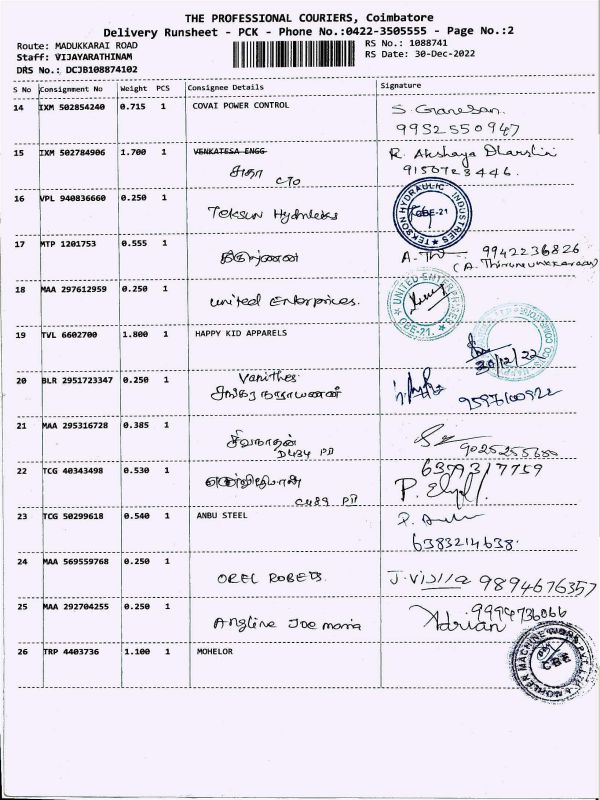 THE PROFESSIONAL COURIERS, Coimbatore
Delivery Runsheet - PCK - Phone No.:0422-3505555 - Page No.:2
Route: MADUKKARAI ROAD
RS No.: 1088741
Staff: VIJAYARATHINAM
RS Date: 30-Dec-2022
DRS No.: DCJB108874102
S No Consignment No Weight PCS Consignee Details Signature
14 IXM 502854240 0.715 1 COVAI POWER CONTROL S. Ganesan.
9952550947
15 IXM 502784906 1.700 1 VENKATESA ENGG R. Akshaya Dharshi
சுதா CTO 9150723446.
16 VPL 940836660 0.250 1
TEKSUN Hydraulics
TEKSON HYDRAULIC INDUSTRIES CBE-21
17 MTP 1201753 0.555 1 9942236826
A. Th
18 MAA 297612959 0.250 1
united Enterprices.
UNITED ENTERPRISES CBE-21.
19 TVL 6602700 1.800 1 HAPPY KID APPARELS
30/12/22
20 BLR 2951723347 0.250 1 Vanithes
சங்கர நாராயணன் 9597100922
21 MAA 295316728 0.385 1
சிவநாதன்
D434 PII
22 TCG 40343498 0.530 1 6399317759
C489 PII
23 TCG 50299618 0.540 1 ANBU STEEL
6383214638.
24 MAA 569559768 0.250 1
OREL ROBETS J. Vijilla 9894676357
25 MAA 292704255 0.250 1 9994736066
Angline Joe maria Adrian
26 TRP 4403736 1.100 1 MOHELOR
MOHLER MACHINE WORKS PVT. LTD. CBE